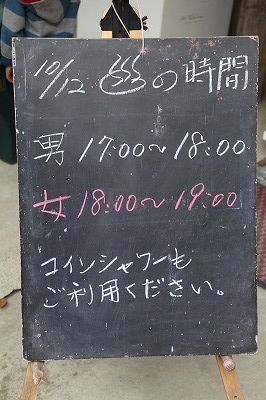 10/12 ♨の時間
男 17:00〜18:00
女 18:00〜19:00
コインシャワーも
ご利用ください。